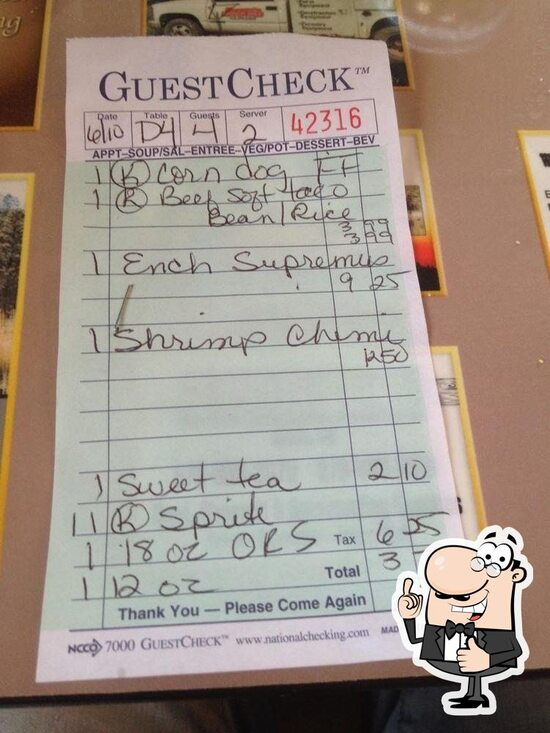 GUESTCHECK™
Date Table Guests Server
6/10 D4 4 2 42316
APPT–SOUP/SAL–ENTREE–VEG/POT–DESSERT–BEV
1 (K) Corn dog FF
1 (K) Beef Soft taco
Bean/Rice
3 99
3 99
1 Ench Supremus
9 25
1 Shrimp Chimi
12 50
1 Sweet tea 2 10
11 (K) Sprite
1 18 oz ORS Tax 6 25
1 12 oz Total 3
Thank You — Please Come Again
NCCO 7000 GUESTCHECK™ www.nationalchecking.com MAD